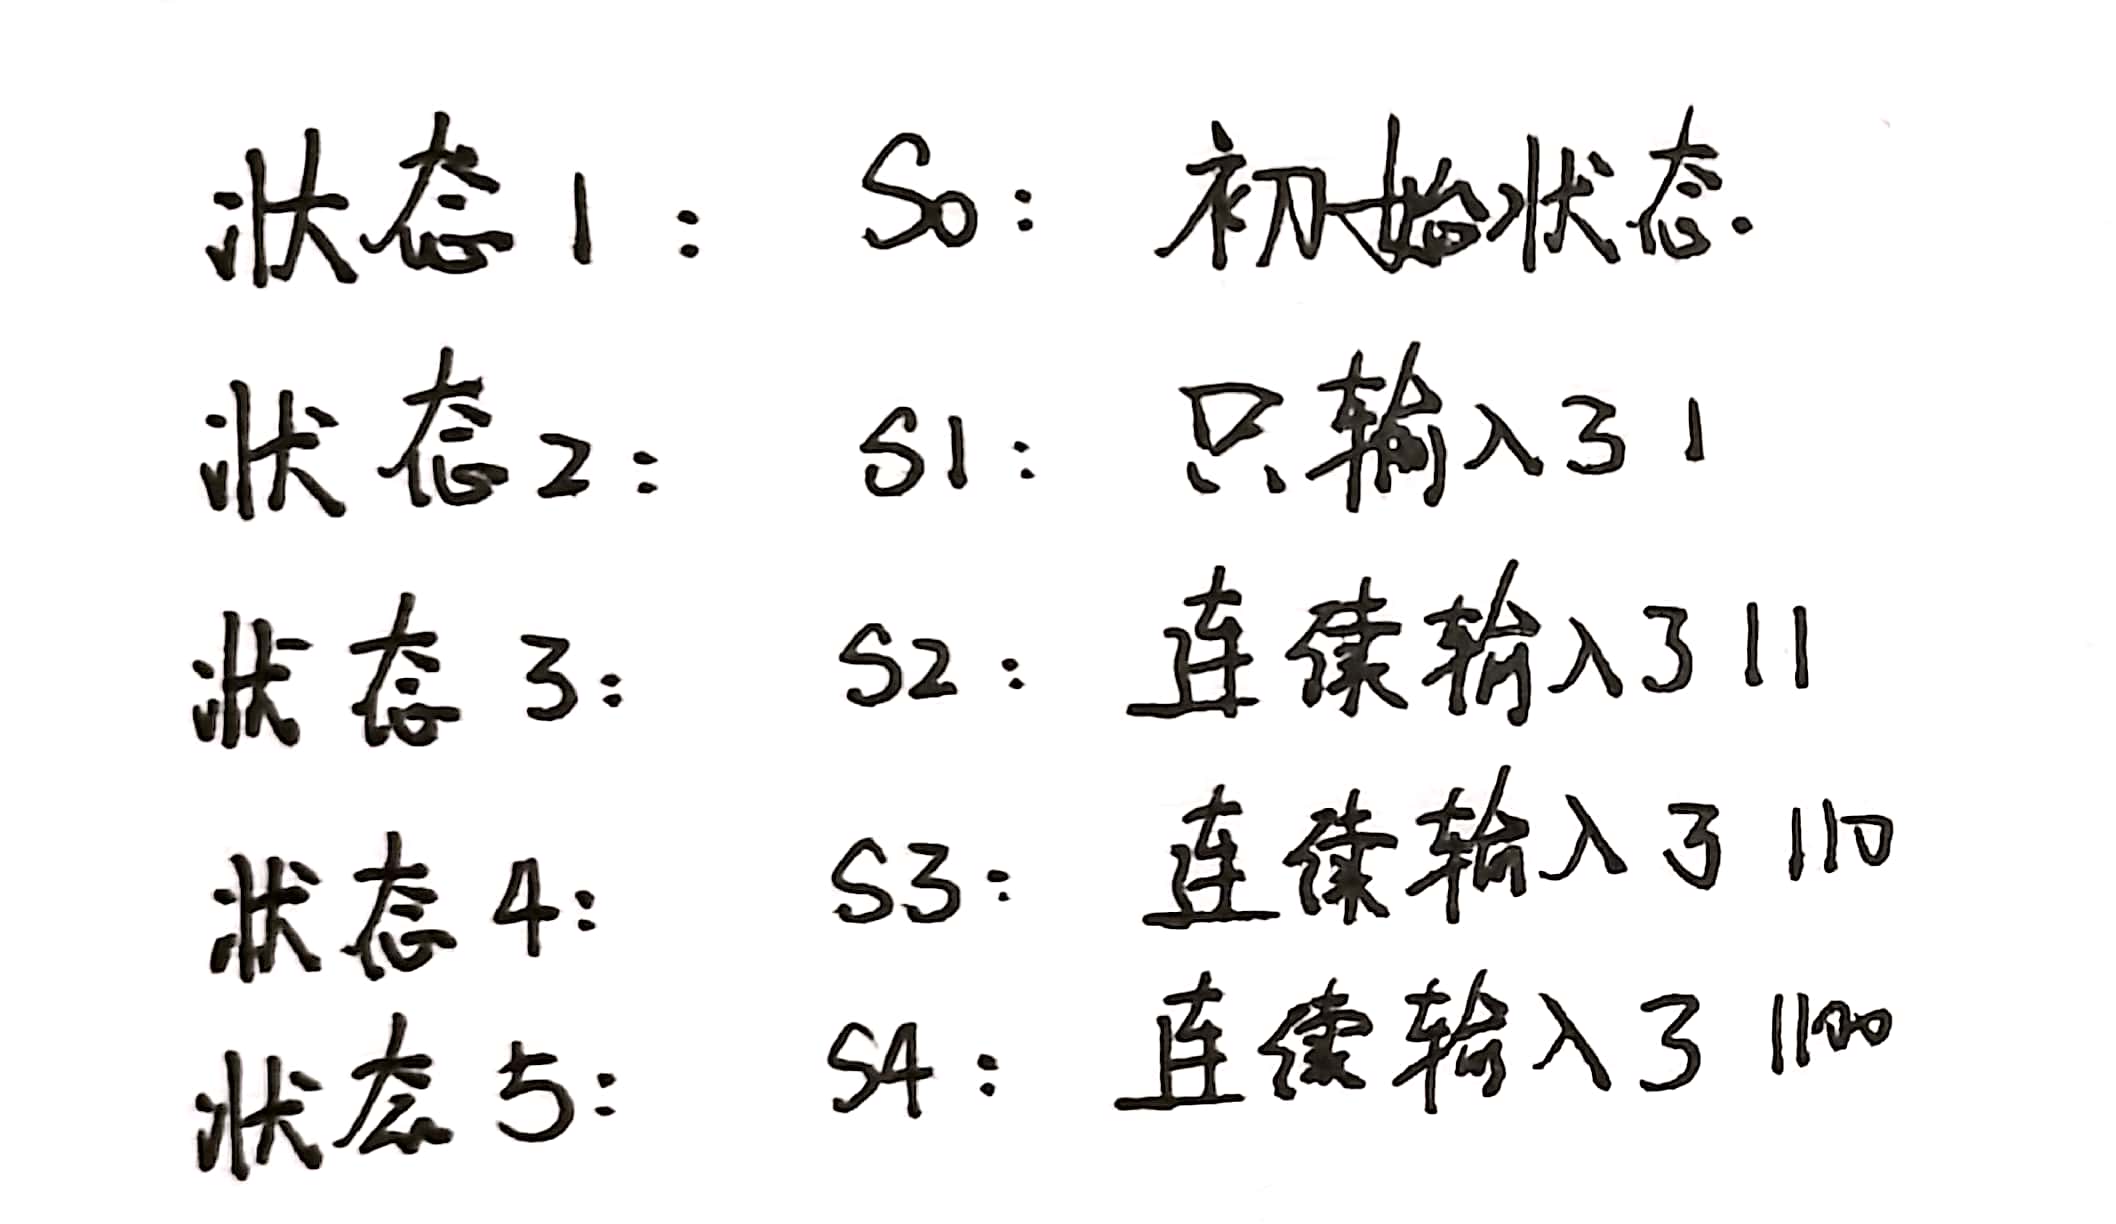 状态1: S0: 初始状态.
状态2: S1: 只输入了1
状态3: S2: 连续输入了11
状态4: S3: 连续输入了110
状态5: S4: 连续输入了1100